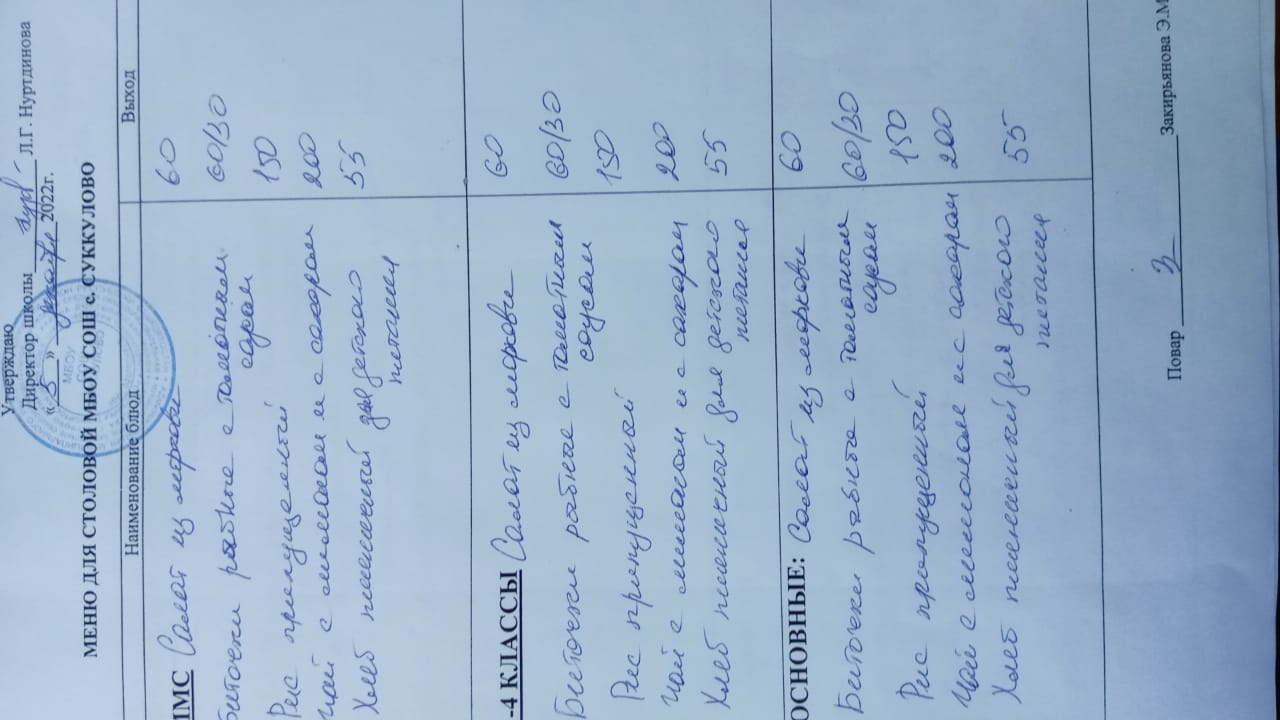 Утверждаю
Директор школы Л.Г. Нуртдинова
« 5 » декабря 2022г.
МЕНЮ ДЛЯ СТОЛОВОЙ МБОУ СОШ с. СУККУЛОВО
Наименование блюд Выход
ІМС Салат из моркови 60
Биточки рыбные с томатным 60/30
соусом
Рис припущенный 150
Чай с лимоном и с сахаром 200
Хлеб пшеничный для детского 55
питания
-4 КЛАССЫ Салат из моркови 60
Биточки рыбные с томатным 60/30
соусом
Рис припущенный 150
Чай с лимоном и с сахаром 200
Хлеб пшеничный для детского 55
питания
ОСНОВНЫЕ: Салат из моркови 60
Биточки рыбные с томатным 60/30
соусом
Рис припущенный 150
Чай с лимоном и с сахаром 200
Хлеб пшеничный для детского 55
питания
Повар Закирьянова Э.М